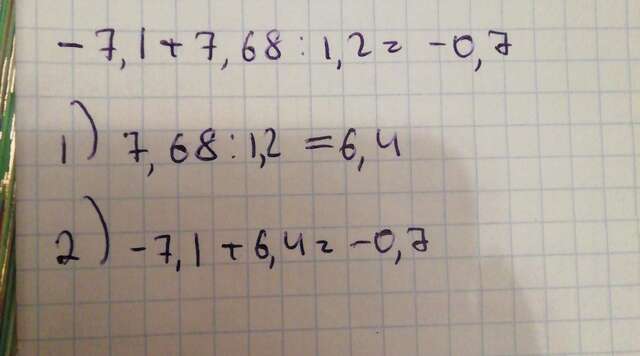 -7,1+7,68:1,2= -0,7
1) 7,68:1,2 =6,4
2) -7,1+6,4= -0,7